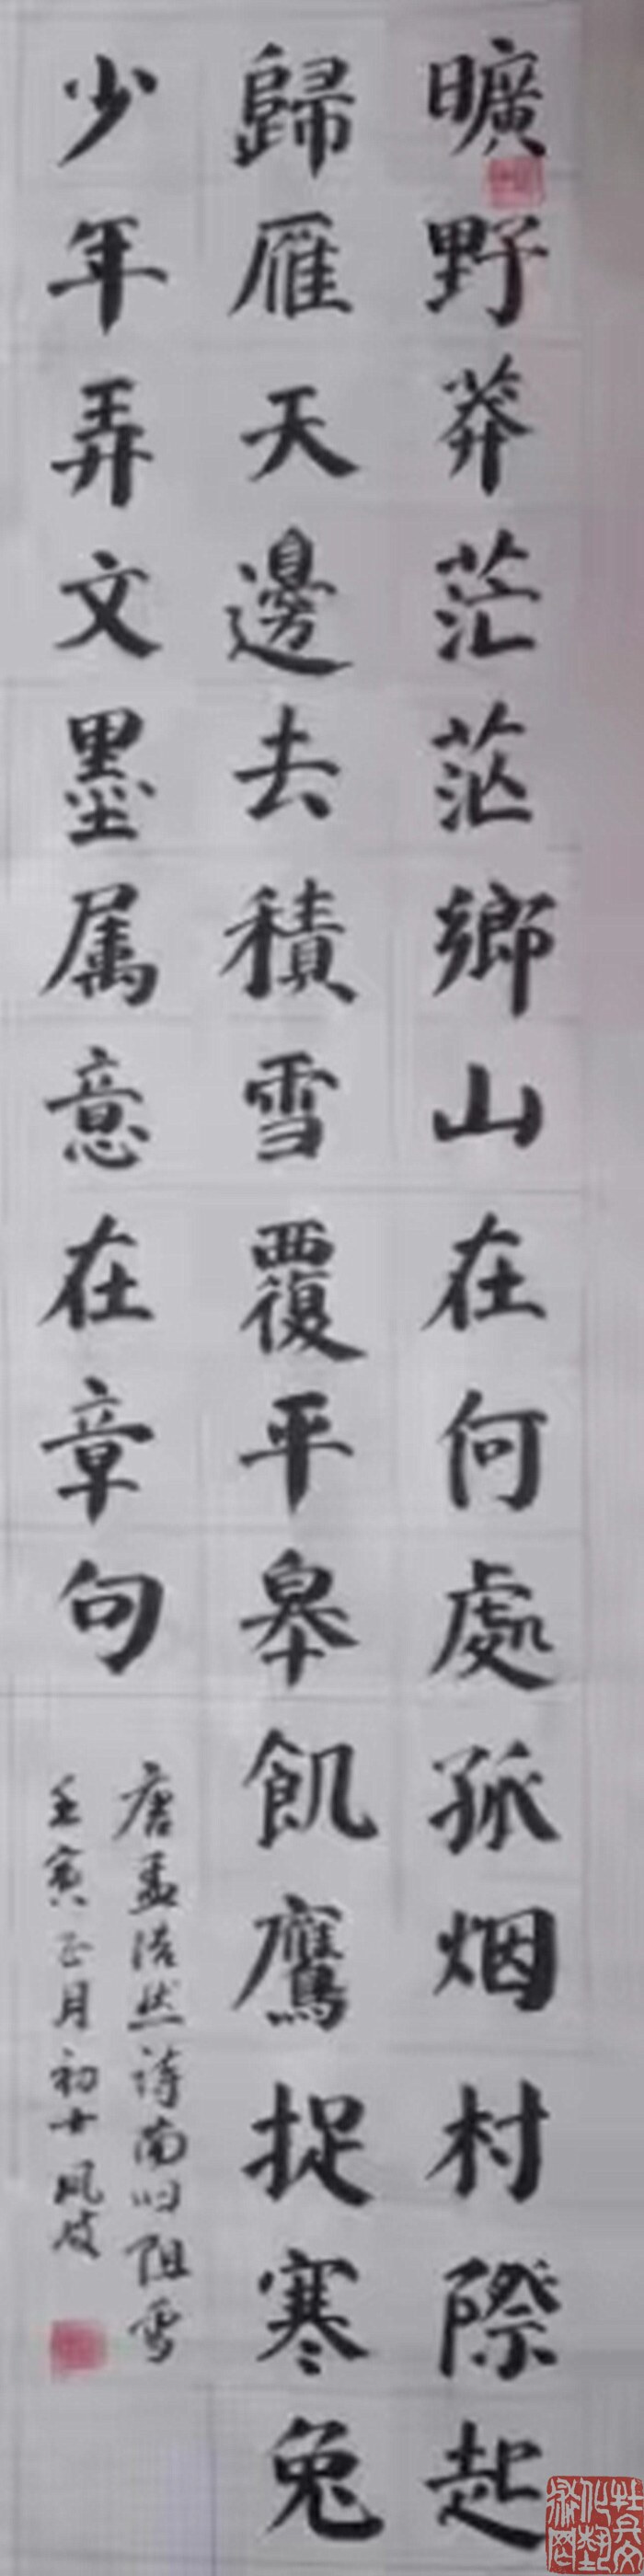 曠野莽茫茫鄉山在何處孤烟村際起
歸雁天邊去積雪覆平皋飢鷹捉寒兔
少年弄文墨属意在章句
唐孟浩然诗南归阻雪
壬寅正月初十凤岐